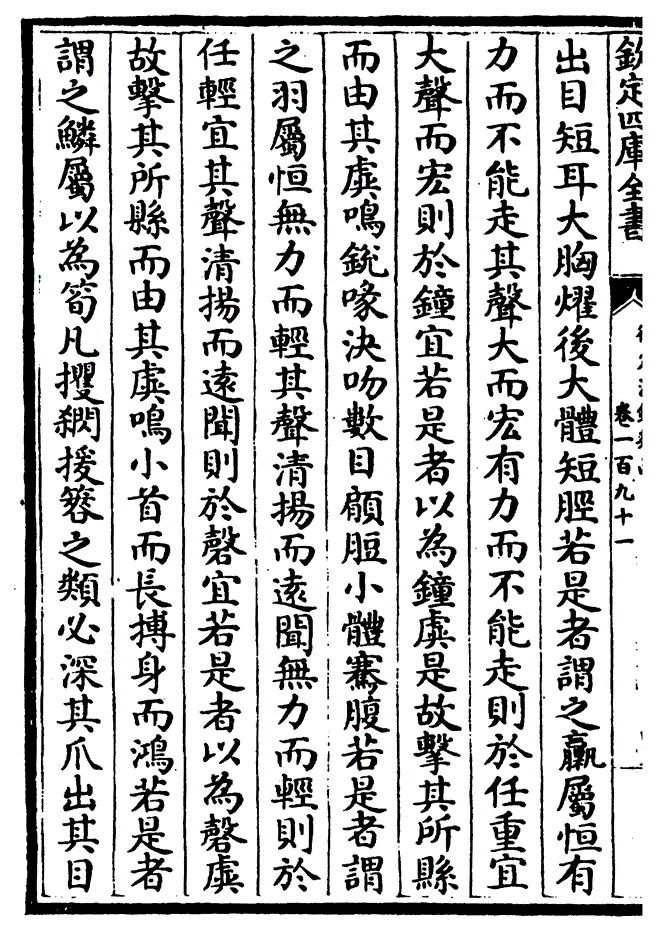 欽定四庫全書
卷一百九十一
出目短耳大胸燿後大體短脰若是者謂之臝屬恒有
力而不能走其聲大而宏有力而不能走則於任重宜
大聲而宏則於鐘宜若是者以為鐘虡是故擊其所縣
而由其虡鳴銳喙決吻數目顅脰小體騫腹若是者謂
之羽屬恒無力而輕其聲清揚而遠聞無力而輕則於
任輕宜其聲清揚而遠聞則於磬宜若是者以為磬虡
故擊其所縣而由其虡鳴小首而長摶身而鴻若是者
謂之鱗屬以為筍凡攫閷援簭之類必深其爪出其目